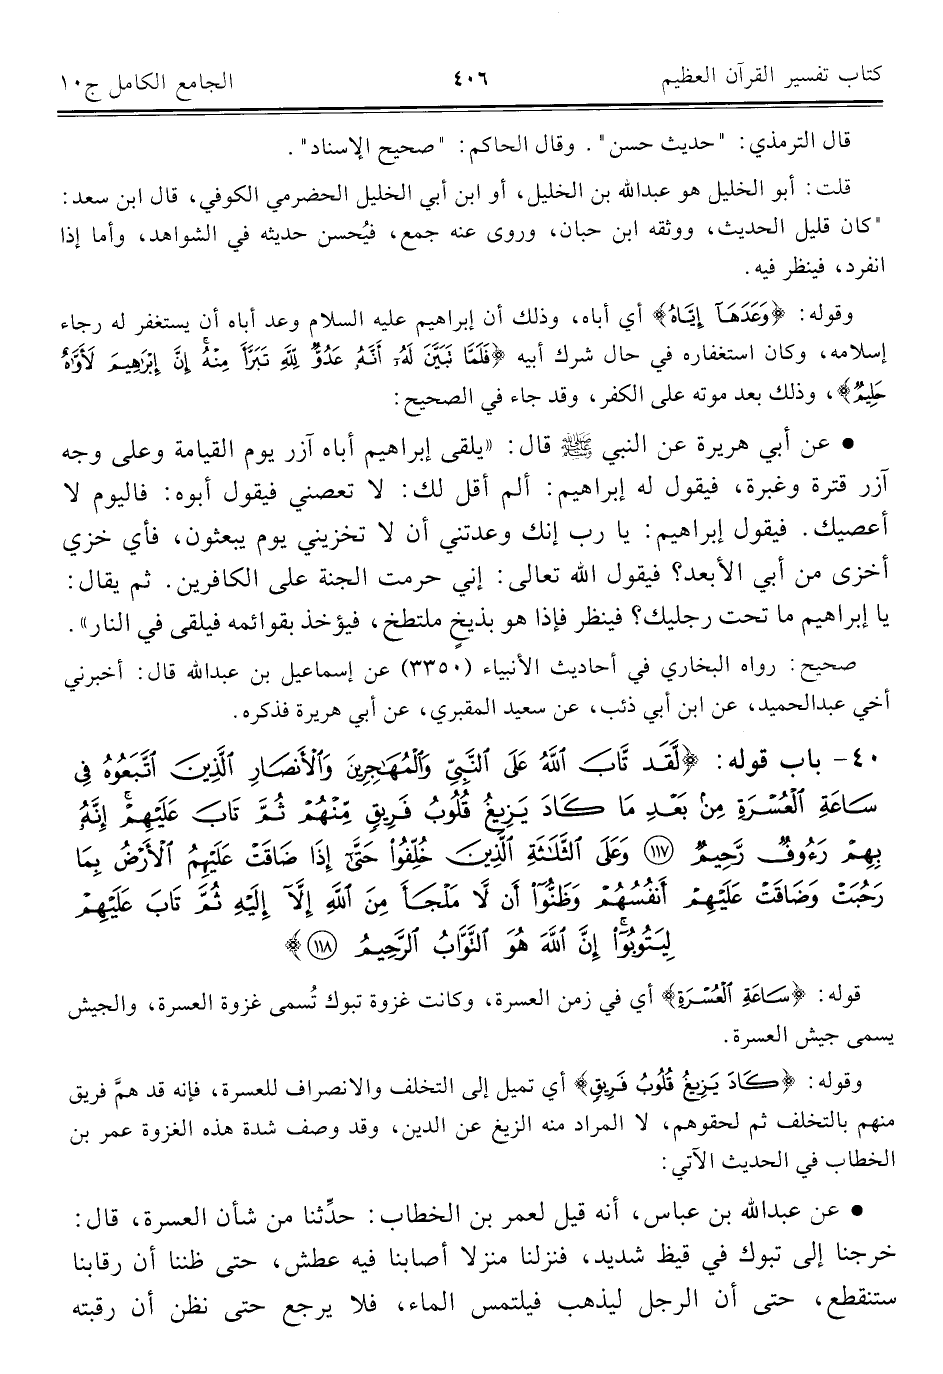 كتاب تفسير القرآن العظيم ٤٠٦ الجامع الكامل ج١٠
قال الترمذي: "حديث حسن". وقال الحاكم: "صحيح الإسناد".
قلت: أبو الخليل هو عبدالله بن الخليل، أو ابن أبي الخليل الحضرمي الكوفي، قال ابن سعد:
"كان قليل الحديث، ووثقه ابن حبان، وروى عنه جمع، فيُحسن حديثه في الشواهد، وأما إذا
انفرد، فينظر فيه.
وقوله: ﴿وَعَدَهَآ إِيَّاهُ﴾ أي أباه، وذلك أن إبراهيم عليه السلام وعد أباه أن يستغفر له رجاء
إسلامه، وكان استغفاره في حال شرك أبيه ﴿فَلَمَّا تَبَيَّنَ لَهُۥٓ أَنَّهُۥ عَدُوٌّ لِّلَّهِ تَبَرَّأَ مِنْهُ ۚ إِنَّ إِبْرَٰهِيمَ لَأَوَّٰهٌ
حَلِيمٌ﴾، وذلك بعد موته على الكفر، وقد جاء في الصحيح:
• عن أبي هريرة عن النبي ﷺ قال: «يلقى إبراهيم أباه آزر يوم القيامة وعلى وجه
آزر قترة وغبرة، فيقول له إبراهيم: ألم أقل لك: لا تعصني فيقول أبوه: فاليوم لا
أعصيك. فيقول إبراهيم: يا رب إنك وعدتني أن لا تخزيني يوم يبعثون، فأي خزي
أخزى من أبي الأبعد؟ فيقول الله تعالى: إني حرمت الجنة على الكافرين. ثم يقال:
يا إبراهيم ما تحت رجليك؟ فينظر فإذا هو بذيخٍ ملتطخ، فيؤخذ بقوائمه فيلقى في النار».
صحيح: رواه البخاري في أحاديث الأنبياء (٣٣٥٠) عن إسماعيل بن عبدالله قال: أخبرني
أخي عبدالحميد، عن ابن أبي ذئب، عن سعيد المقبري، عن أبي هريرة فذكره.
٤٠- باب قوله: ﴿لَّقَد تَّابَ ٱللَّهُ عَلَى ٱلنَّبِيِّ وَٱلْمُهَٰجِرِينَ وَٱلْأَنصَارِ ٱلَّذِينَ ٱتَّبَعُوهُ فِى
سَاعَةِ ٱلْعُسْرَةِ مِنۢ بَعْدِ مَا كَادَ يَزِيغُ قُلُوبُ فَرِيقٍ مِّنْهُمْ ثُمَّ تَابَ عَلَيْهِمْ ۚ إِنَّهُۥ
بِهِمْ رَءُوفٌ رَّحِيمٌ ١١٧ وَعَلَى ٱلثَّلَٰثَةِ ٱلَّذِينَ خُلِّفُوا۟ حَتَّىٰٓ إِذَا ضَاقَتْ عَلَيْهِمُ ٱلْأَرْضُ بِمَا
رَحُبَتْ وَضَاقَتْ عَلَيْهِمْ أَنفُسُهُمْ وَظَنُّوٓا۟ أَن لَّا مَلْجَأَ مِنَ ٱللَّهِ إِلَّآ إِلَيْهِ ثُمَّ تَابَ عَلَيْهِمْ
لِيَتُوبُوٓا۟ ۚ إِنَّ ٱللَّهَ هُوَ ٱلتَّوَّابُ ٱلرَّحِيمُ ١١٨﴾
قوله: ﴿سَاعَةِ ٱلْعُسْرَةِ﴾ أي في زمن العسرة، وكانت غزوة تبوك تُسمى غزوة العسرة، والجيش
يسمى جيش العسرة.
وقوله: ﴿كَادَ يَزِيغُ قُلُوبُ فَرِيقٍ﴾ أي تميل إلى التخلف والانصراف للعسرة، فإنه قد همَّ فريق
منهم بالتخلف ثم لحقوهم، لا المراد منه الزيغ عن الدين، وقد وصف شدة هذه الغزوة عمر بن
الخطاب في الحديث الآتي:
• عن عبدالله بن عباس، أنه قيل لعمر بن الخطاب: حدِّثنا من شأن العسرة، قال:
خرجنا إلى تبوك في قيظ شديد، فنزلنا منزلا أصابنا فيه عطش، حتى ظننا أن رقابنا
ستنقطع، حتى أن الرجل ليذهب فيلتمس الماء، فلا يرجع حتى نظن أن رقبته